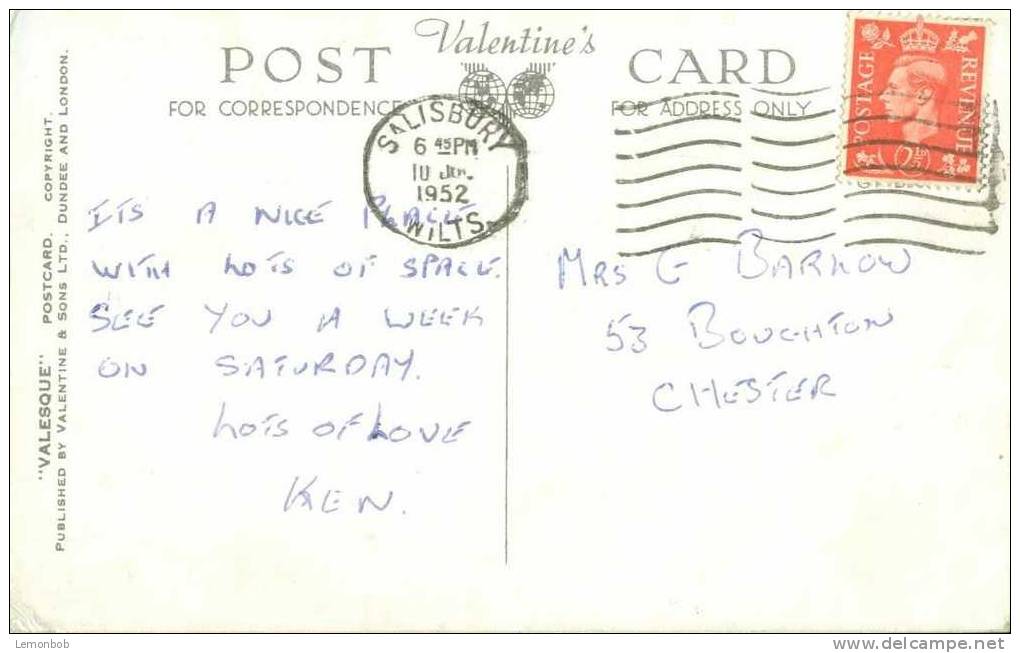 "VALESQUE" POSTCARD. COPYRIGHT.
PUBLISHED BY VALENTINE & SONS LTD., DUNDEE AND LONDON.
Valentine's
POST CARD
FOR CORRESPONDENCE FOR ADDRESS ONLY
SALISBURY
6 45 PM
10
1952
WILTS.
POSTAGE REVENUE
2½D
ITS A NICE PLACE
WITH LOTS OF SPACE.
SEE YOU A WEEK
ON SATURDAY.
LOTS OF LOVE
KEN.
MRS G BARLOW
53 BOUGHTON
CHESTER
Lemonbob
www.delcampe.net